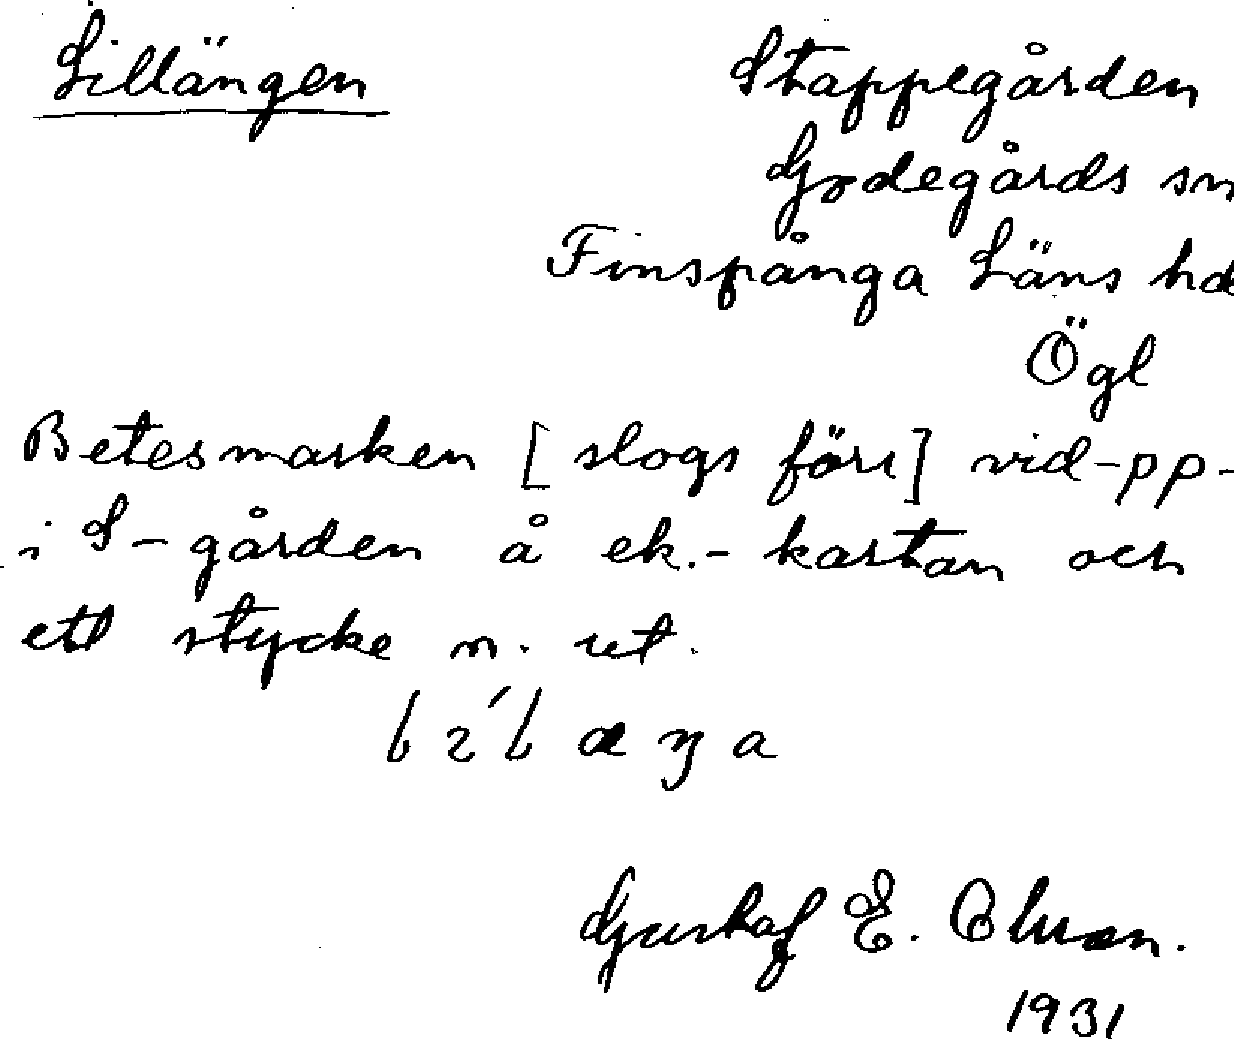 Lillängen
Stappegården
Godegårds sn
Finspånga Läns hd
Ögl
Betesmarken [slogs förr] vid -pp-
i S-gården å ek.-kartan och
ett stycke n. ut.
Gustaf E.
1931